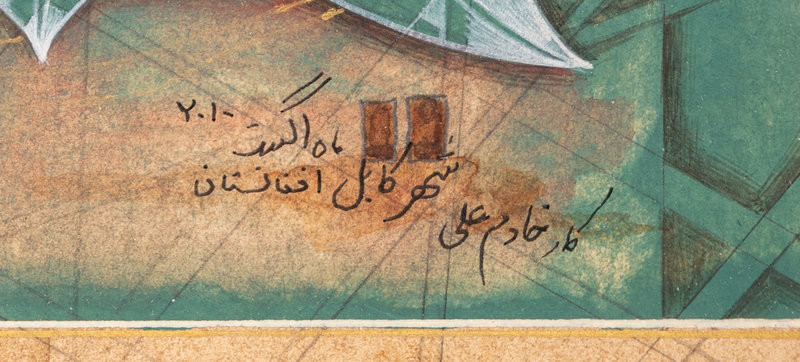 ماه اگست ۲۰۱۰
شهر کابل افغانستان
کار خادم علی